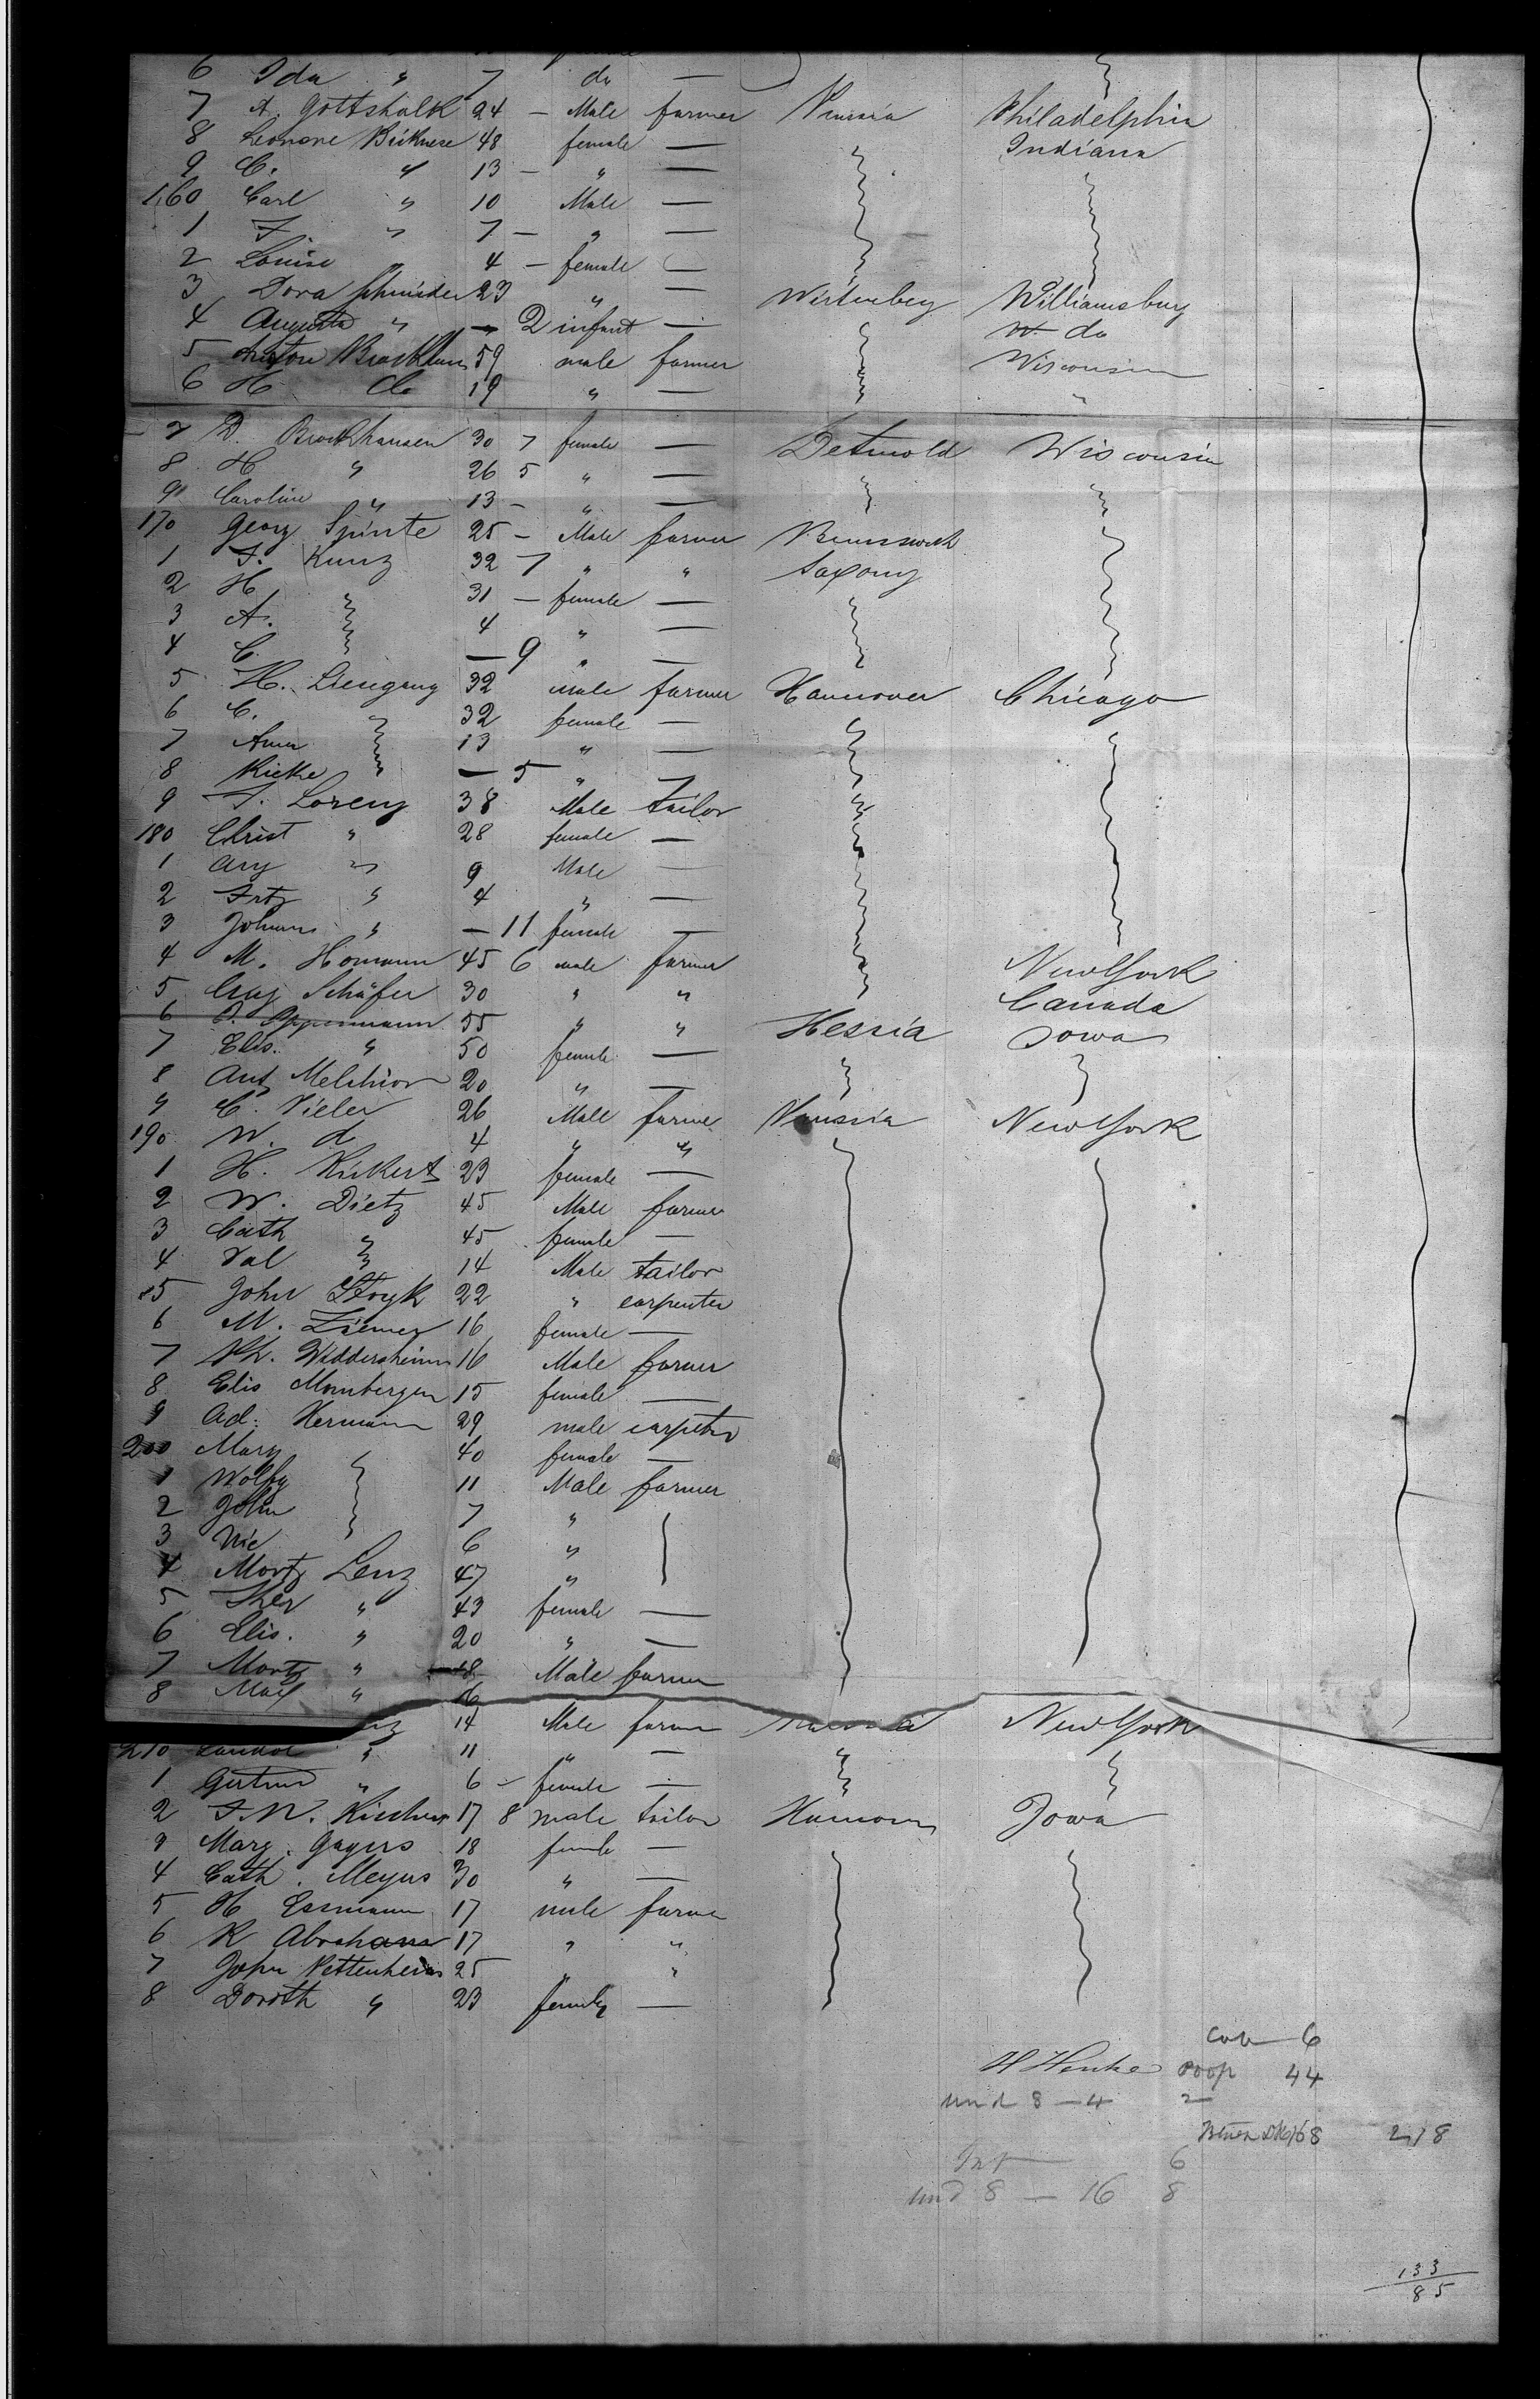 6 Ida " 7 do —
7 A. Gottshalk 24 — Male farmer Prussia Philadelphia
8 Leonore 48 female — Indiana
9 C. " 13 — " —
160 Carl " 10 Male —
1 F. " 7 — " —
2 Louise " 4 — female —
3 Dora Schnieder 23 " — Wirtenberg Williamsburg
4 Augusta " — 2 infant — do
5 Anton 59 male farmer Wisconsin
6 H do 19 " — "
7 D. Brockhausen 30 7 female — Detmold Wisconsin
8 H " 26 5 " —
9 Caroline " 13 — " —
170 Georg 25 — Male farmer Brunswick
1 F. Kunz 32 7 " " Saxony
2 H 31 — female —
3 A. 4 " —
4 C. — 9 " —
5 H. Liengang 32 male farmer Hannover Chicago
6 C. 32 female —
7 Anna 13 " —
8 Rieke — 5 " —
9 F. Lorenz 38 Male tailor
180 Christ " 28 female —
1 Aug " 9 Male —
2 Fritz " 4 " —
3 Johanna " — 11 female —
4 M. Homann 45 6 male farmer New York
5 Schäfer 30 " " Canada
6 55 " " Hessia Iowa
7 Elis. " 50 female —
8 Ant Melchior 20 " —
9 C. Vieler 26 Male farmer Prussia New York
190 W. d 4 " "
1 H. Rickert 23 female —
2 W. Dietz 45 Male farmer
3 Cath 45 female —
4 Val 14 Male tailor
5 John 22 " carpenter
6 M. Ziemer 16 female —
7 Ph. Widdersheim 16 Male farmer
8 Elis Mombergen 15 female —
9 Ad. Hermann 29 male carpeter
200 Mary 40 female —
1 Wolfg 11 Male farmer
2 John 7 "
3 Nic 6 "
4 Mortz Lenz 47 "
5 Ther " 43 female —
6 Elis. " 20 " —
7 Mortz " 18 Male farmer
8 " 16
14 Male farmer New York
210 " 11 " —
1 Gertrud " 6 — female —
2 F. W. 17 8 male tailor Hannover Iowa
3 Marg. Gayers 18 female —
4 Cath. Meyers 30 " —
5 H Essmann 17 male farmer
6 R Abraham 17 " "
7 John Pettenheim 25 " "
8 Doroth " 23 female —
Cab — 6
H Henke Poop 44
und 8 — 4 2
168 218
Inf 6
und 8 — 16 8
133
85